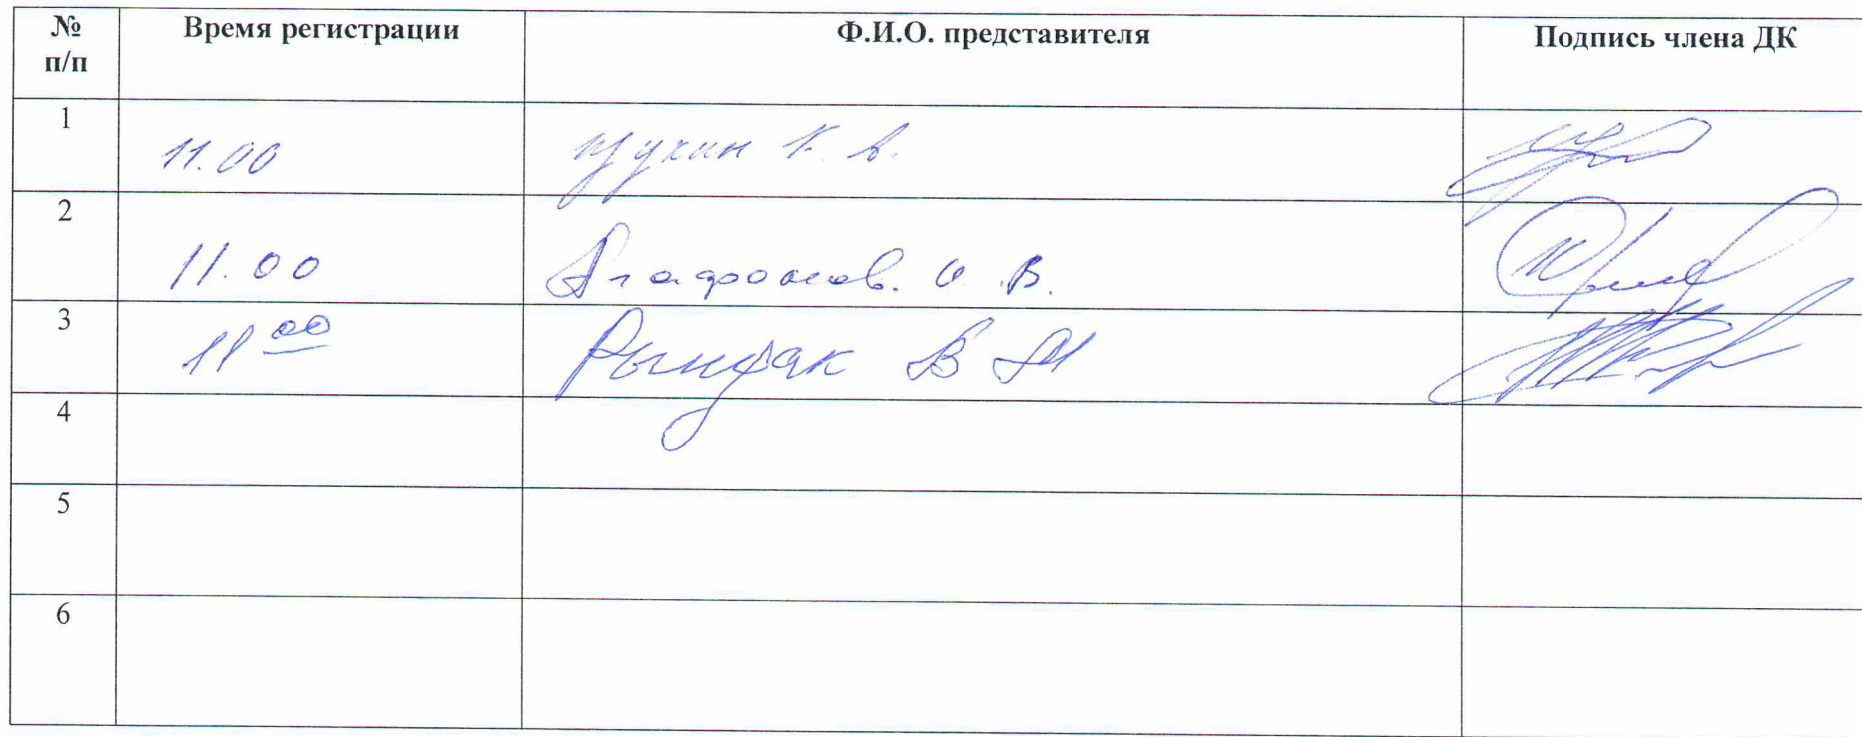 № п/п Время регистрации Ф.И.О. представителя Подпись члена ДК
1 11.00 Щукин К. В.
2 11.00 Агафонов. О. В.
3 11 00 В М
4
5
6